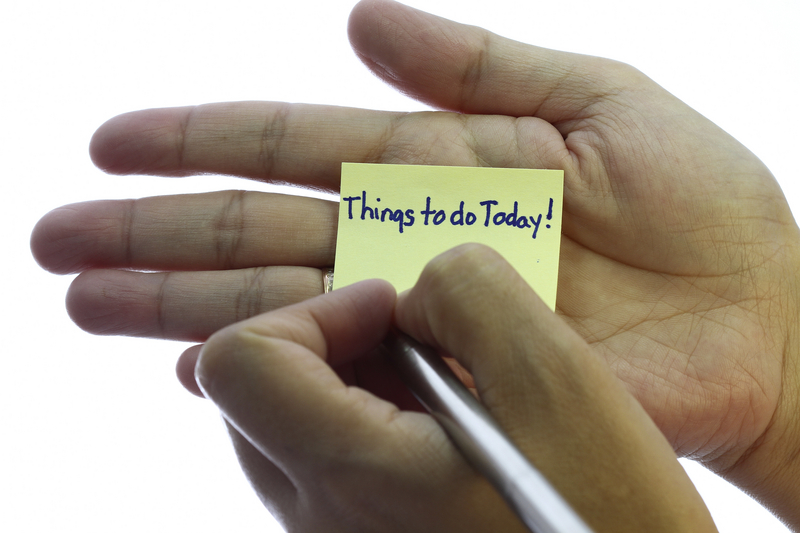 Things to do Today!